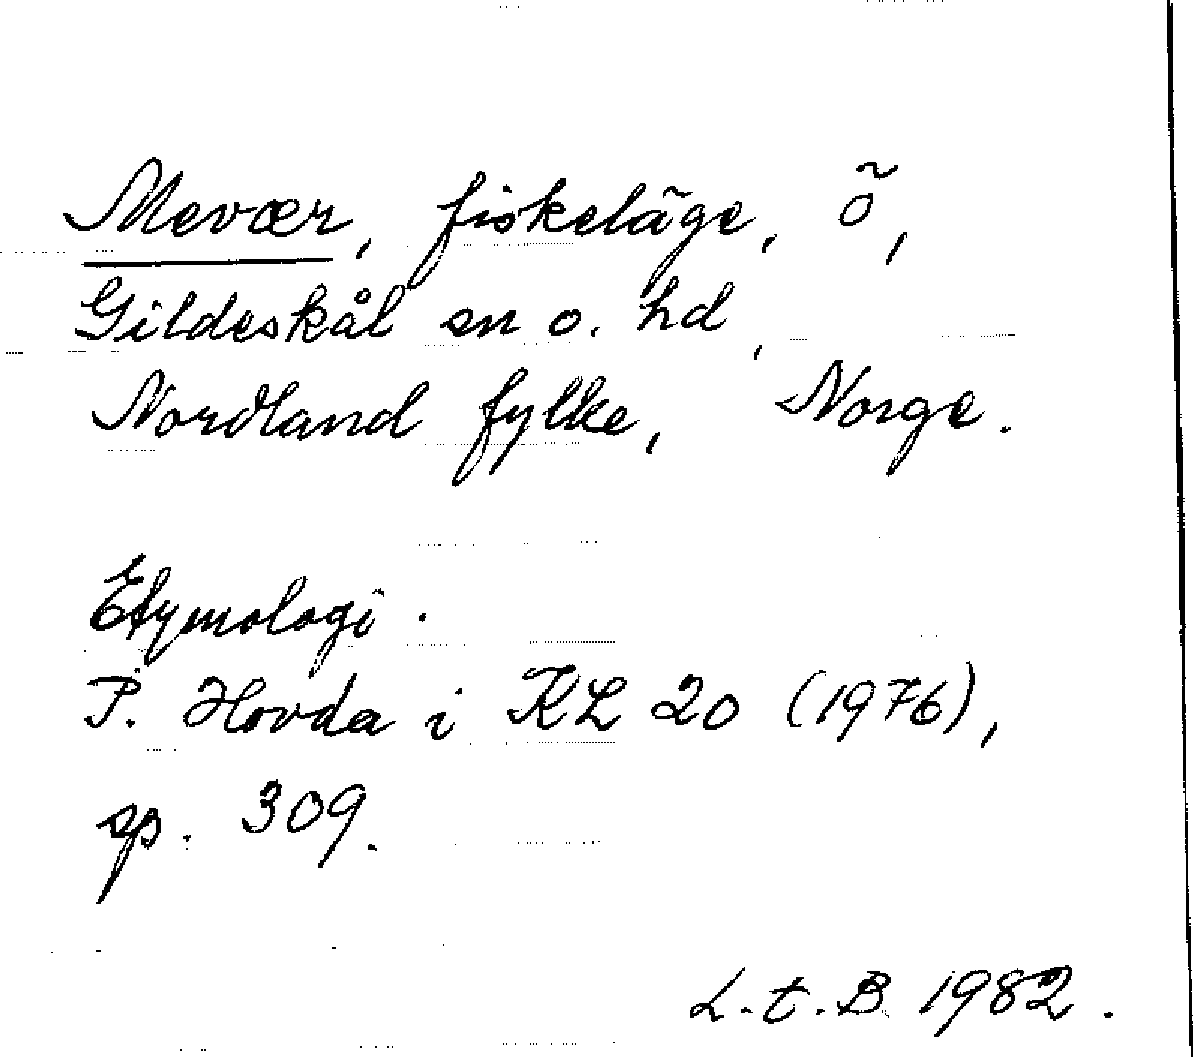 Mevær, fiskeläge, ö,
Gildeskål sn o. hd,
Nordland fylke, Norge.
Etymologi.
P. Hovda i KL 20 (1976),
sp. 309.
L.t.B. 1982.